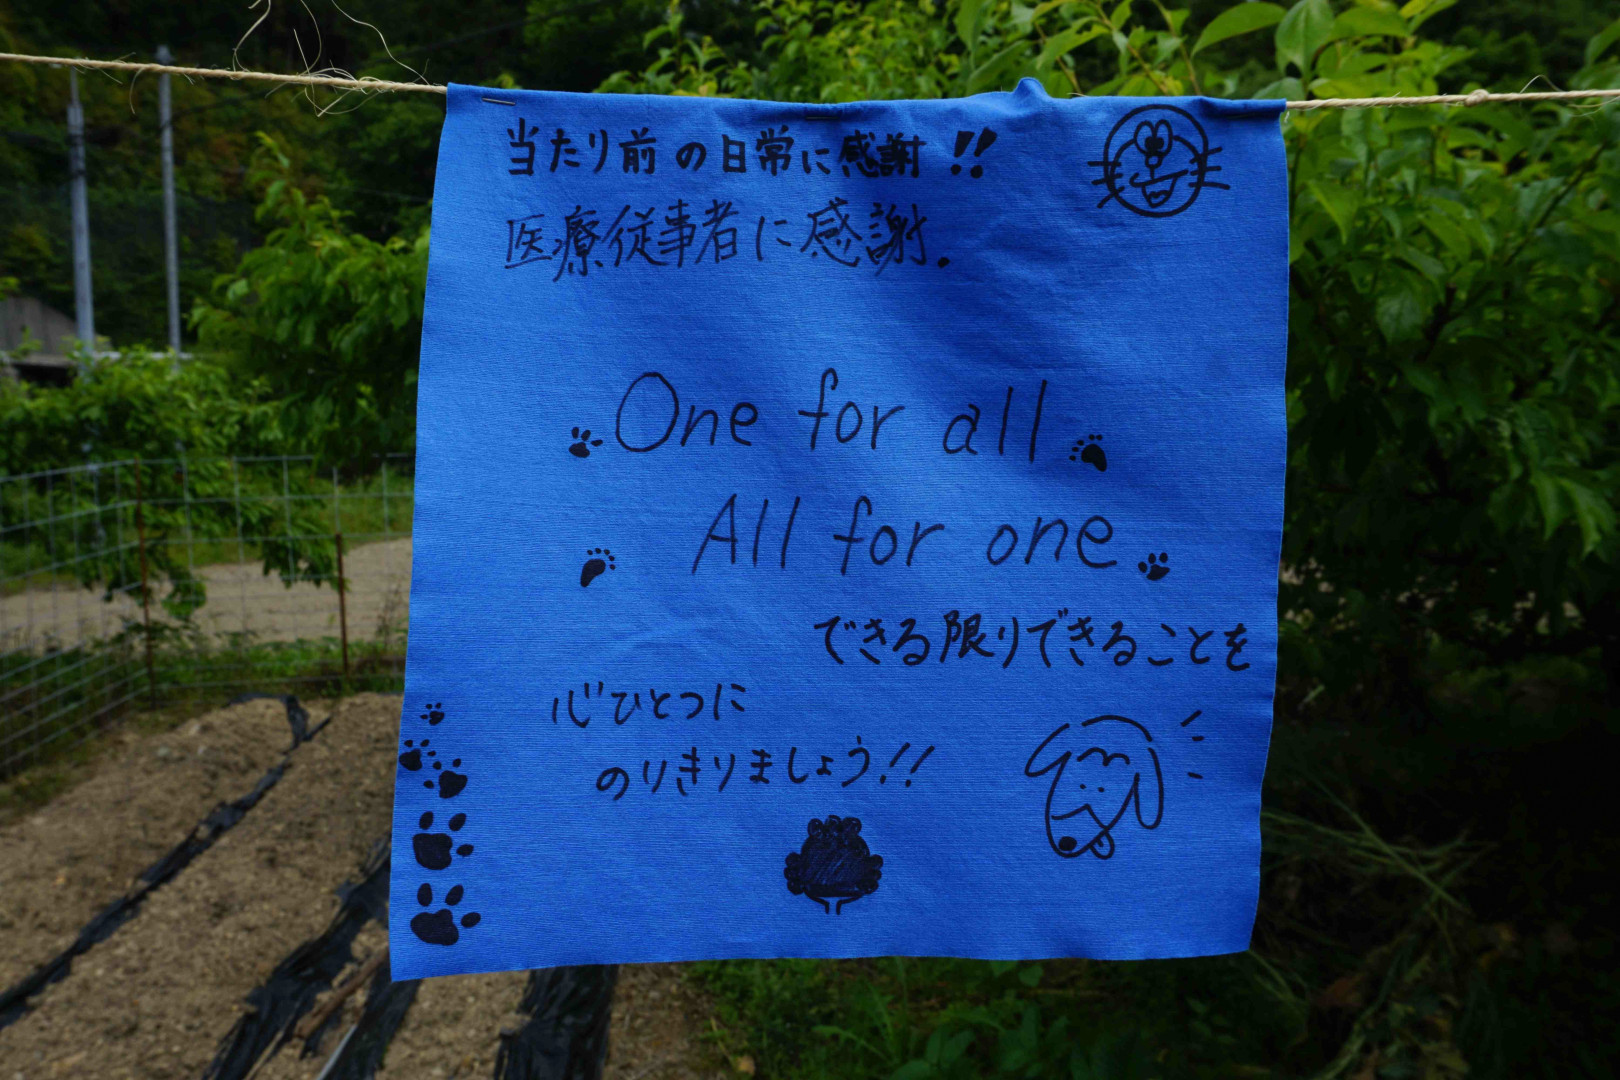 当たり前の日常に感謝!!
医療従事者に感謝.
One for all
All for one
できる限りできることを
心ひとつに
のりきりましょう!!